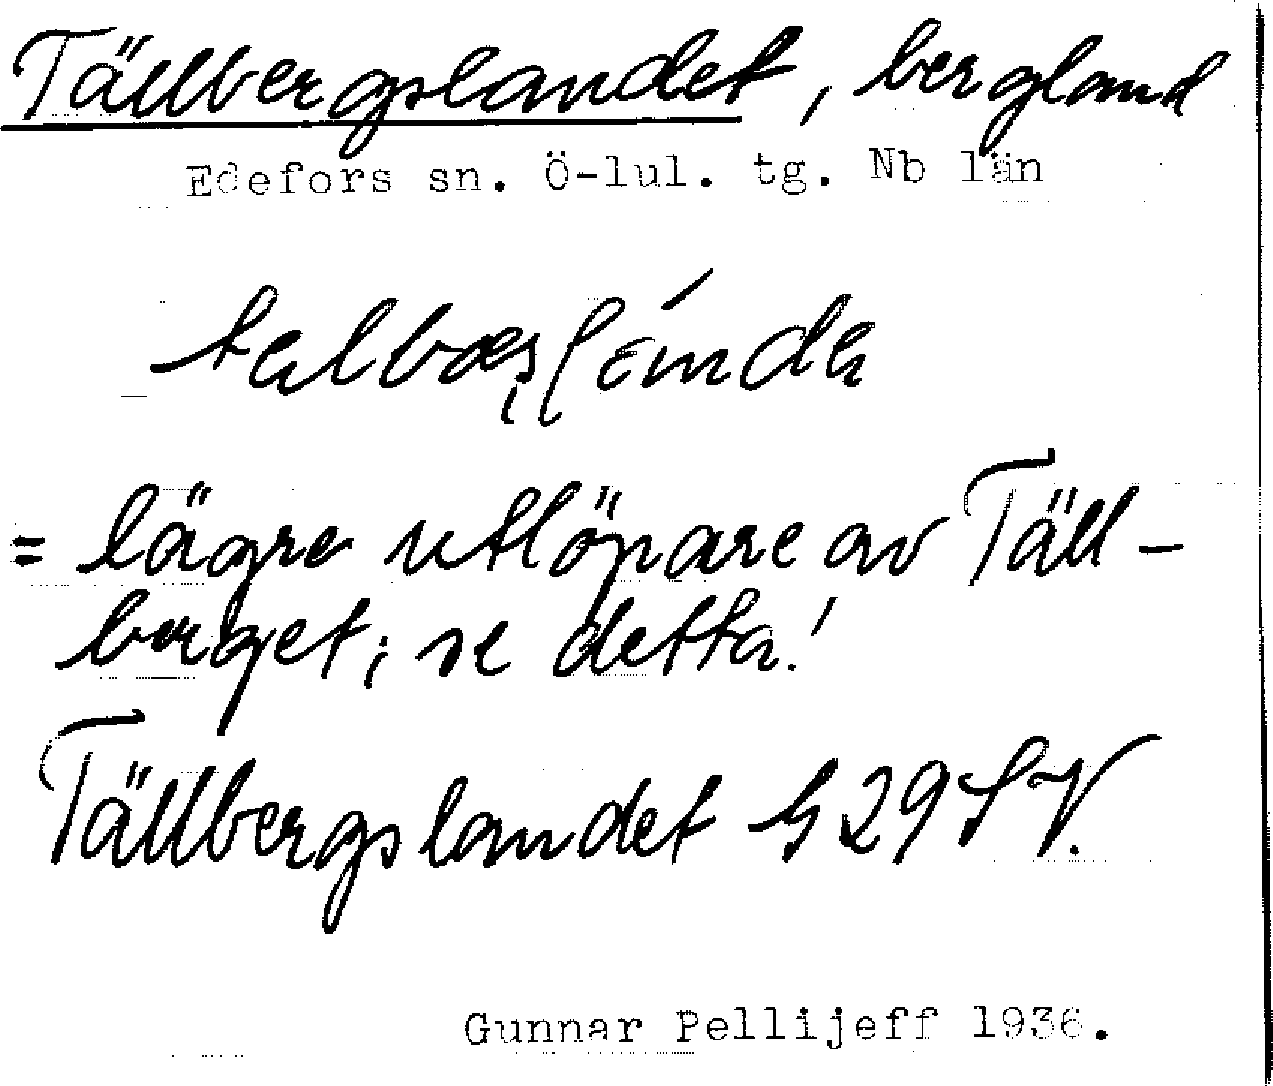 Tällbergslandet, bergland
Edefors sn. Ö-lul. tg. Nb län
= lägre utlöpare av Täll-
berget; se detta!
Tällbergslandet 29 SV.
Gunnar Pellijeff 1936.